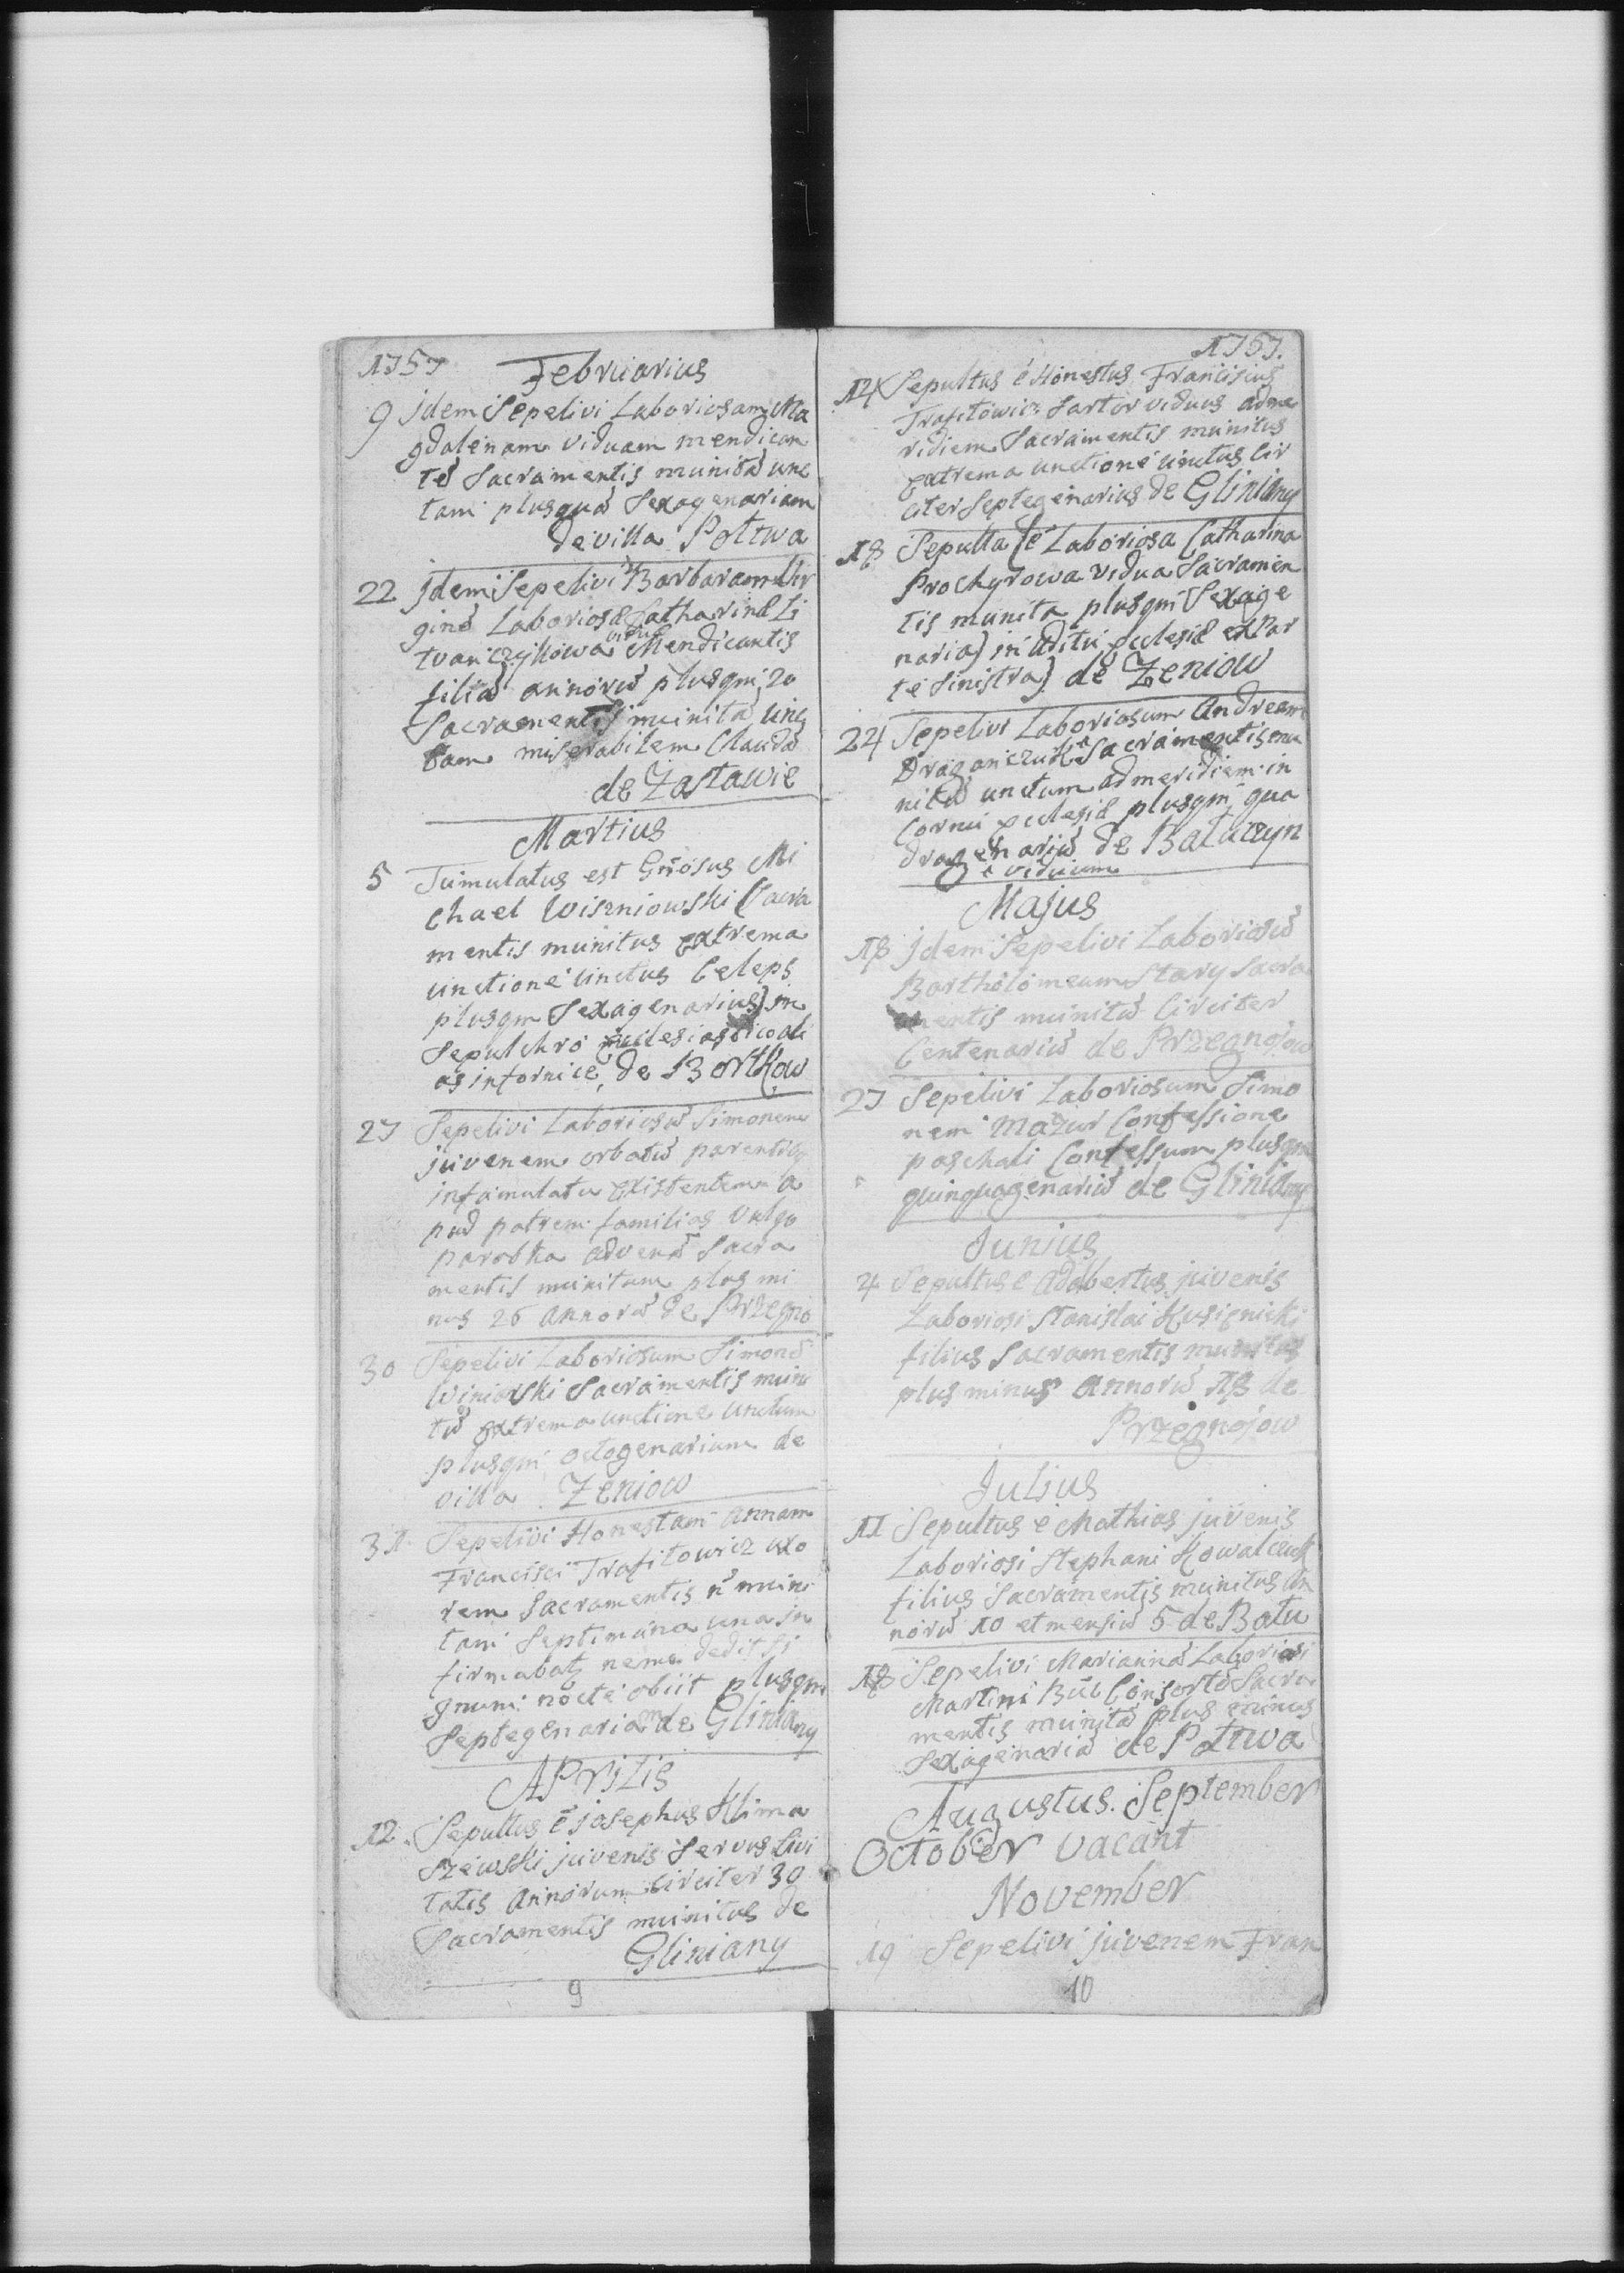 1757 Februarius
9 Jdem Sepelivi Laboriosam Ma
gdalenam viduam mendican
tē Sacramentis munitā unc
tam plusquā Sexagenariam
de villa Połtwa
22 Jdem Sepelivi Barbaram Vir
ginē Laboriosæ Catharinæ Li
twaniczykowa vidua Mendicantis
filiā annorū plusqm 20
Sacramentis munitā unc
tam miserabilem Claudā
de Zastawie
Martius
5 Tumulatus est Gnrosus Mi
chael Wiszniowski Sacra
mentis munitus extrema
unctione unctus Celeps
plusqm Sexagenarius) in
Sepulchro ecclesiastico ali
as infornice, de Bortkow
27 Sepelivi Laboriosū Simonem
juvenem orbatū parentibȝ
infamulatu existentem a
pud patrem familias vulgo
parobka advenā Sacra
mentis munitum plus mi
nus 26 annorū de Przegno
30 Sepelivi Laboriosum Simonē
Winiarski Sacramentis muni
tū extrema unctione unctum
plusqm octogenarium de
villa Zeniow
31. Sepelivi Honestam Annam
Francisci Trafitowicz uxo
rem Sacramentis n̄ muni
tam Septimana una in
firmabatȝ nemo dedit Si
gnum: nocte obiit plusqm
Septegenariam de Gliniany
APrilis
12. Sepultus ē josephus Klima
szewski juvenis Servus Civi
tatis Annorum circiter 30
Sacramentis munitus de
Gliniany
9
1757.
14 Sepultus ē Honestus Franciscus
Trafitowicz Sartor viduus adme
ridiem Sacramentis munitus
extrema unctione unctus Cir
citer Septegenarius de Gliniany
18 Sepulta ē Laboriosa Catharina
Prochyrowa vidua Sacramen
tis munita plusqm Sexage
naria) in aditu ecclesiæ ex Par
te sinistra) de Zeniow
24 Sepelivi Laboriosum Andream
Draganiczuk Sacramentis mu
nitū unctum ad meridiem in
Cornu ecclesiæ plusqm qua
dragenariū de Balaczyn
viduum
Majus
18 Jdem Sepelivi Laboriosū
Bartholomeum Stary Sacra
mentis munitū Circiter
Centenariū de Przegnojow
27 Sepelivi Laboriosum Simo
nem Mazur Confessione
paschali Confessum plusqm
quinquagenariū de Gliniany
Junius
4 Sepultus ē Adalbertus juvenis
Laboriosi Stanislai Kusienicki
filius Sacramentis munitus
plus minus Annorū 18 de
Przegnojow
Julius
11 Sepultus ē Mathias juvenis
Laboriosi Stephani Kowalczuk
filius Sacramentis munitus An
norū 10 et mensiū 5 de Bału
18 Sepelivi Mariannā Laboriosi
Martini Buc Consortē Sacra
mentis munitā plus minus
Sexagenariā de Połtwa
Augustus. September
October vacant
November
19 Sepelivi juvenem Fran
10